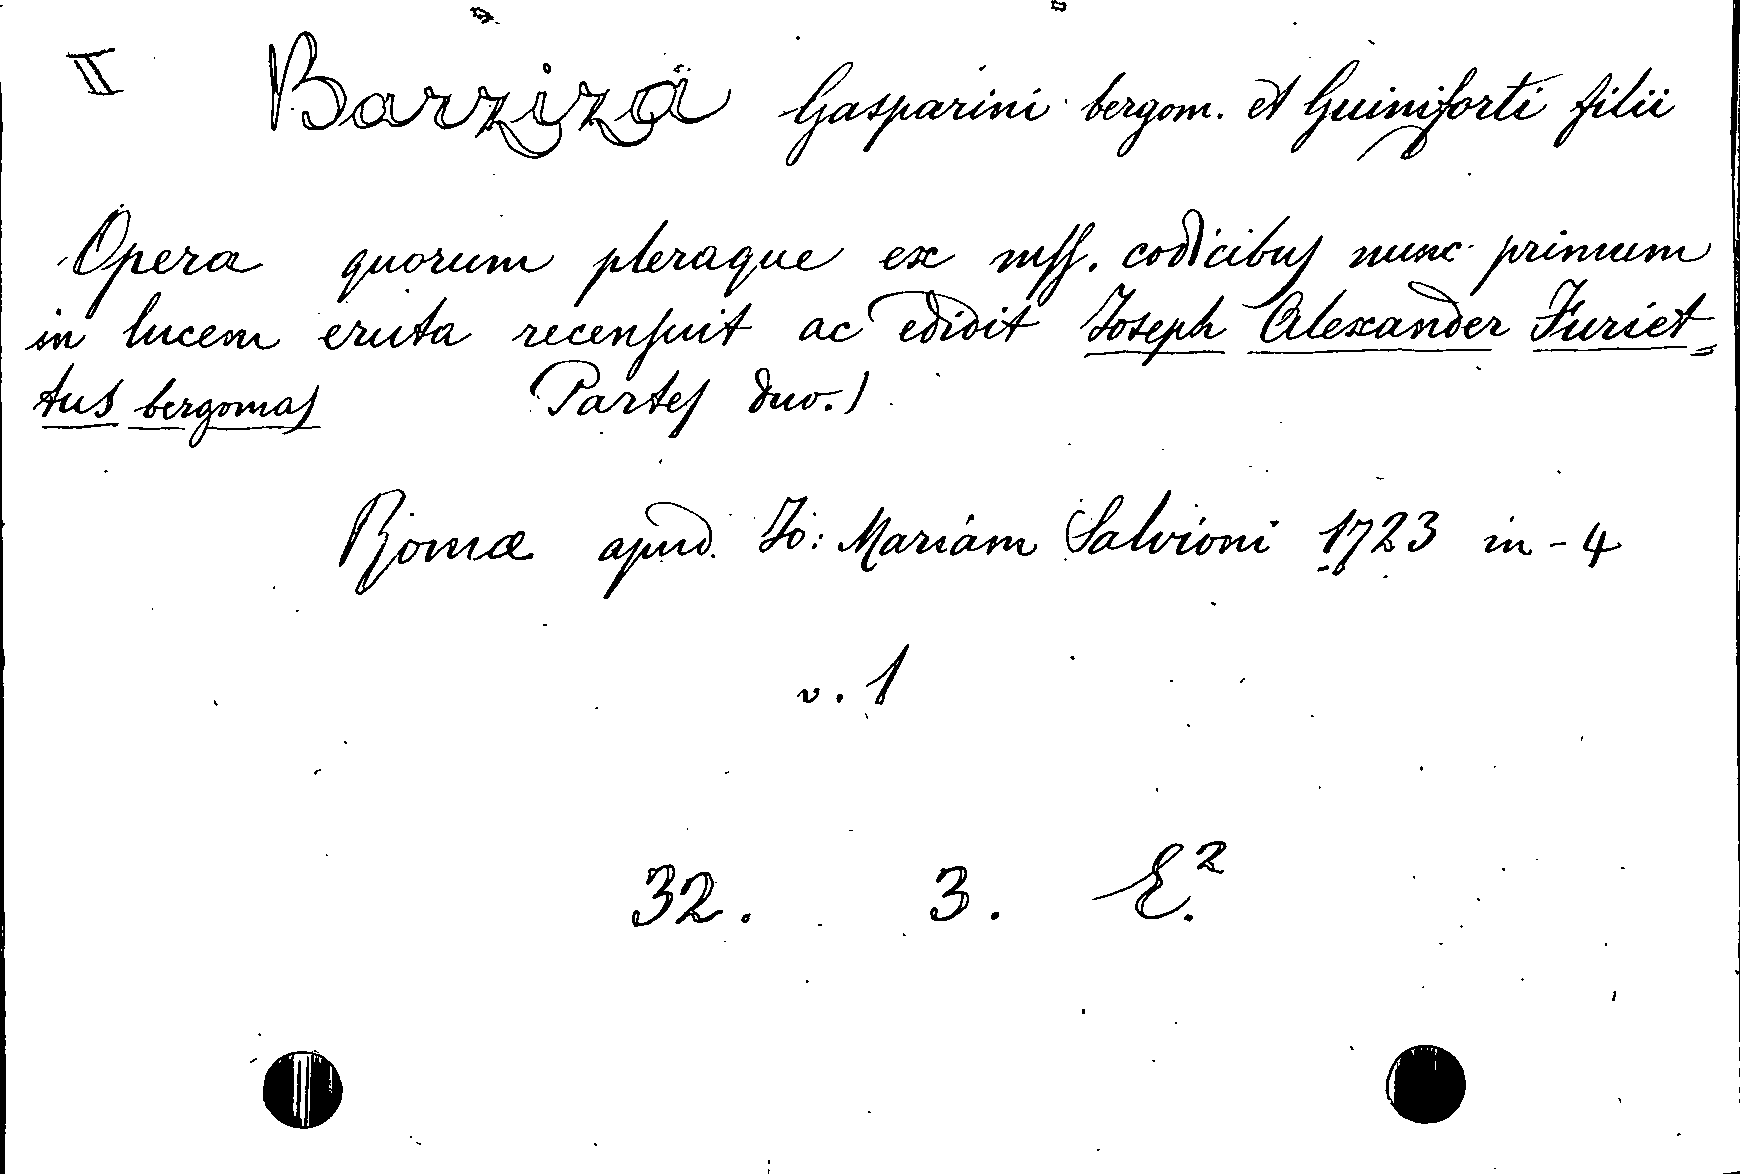 II Barziza Gasparini bergom. et Guiniforti filii
Opera quorum pleraque ex mſſ. codicibus nunc primum
in lucem eruta recenſuit ac edidit Joseph Alexander Furiet=
tus bergomas Partes duo.)
Romæ apud. Jo: Mariam Salvioni 1723 in-4
v. 1
32. 3. E.²